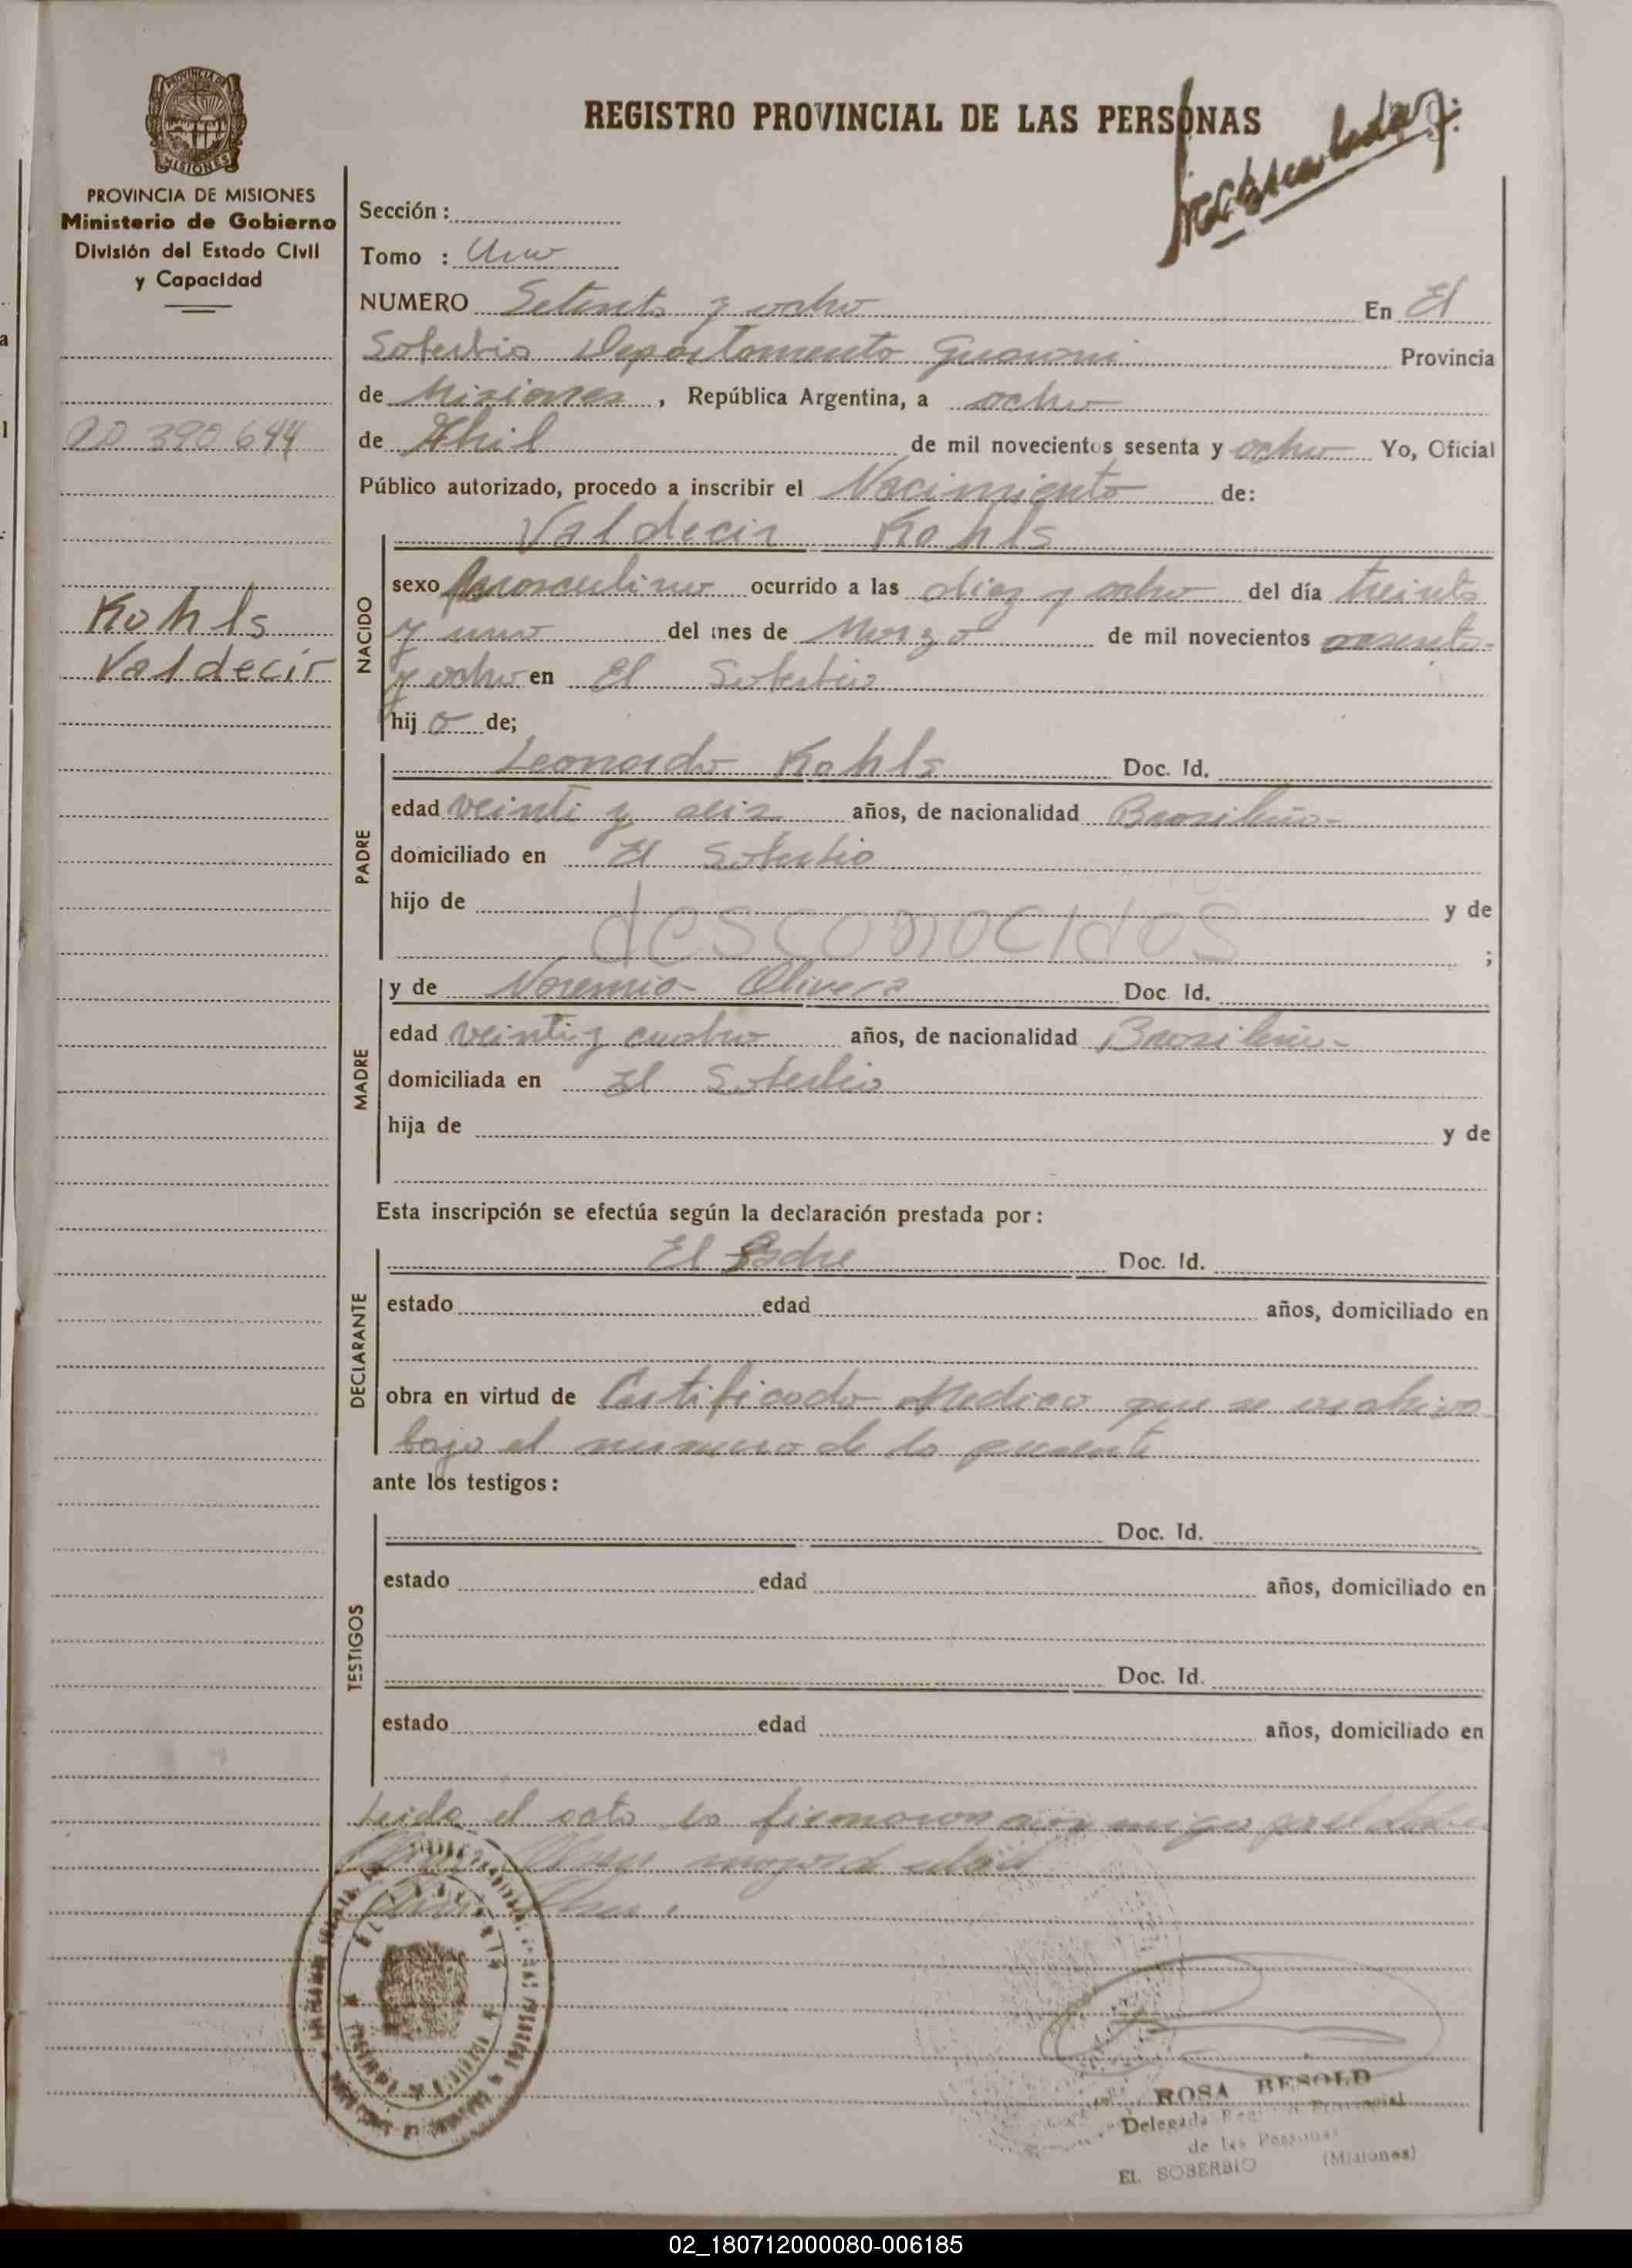 PROVINCIA DE MISIONES
Ministerio de Gobierno
División del Estado Civil
y Capacidad
390644
Kohls
Valdecir
REGISTRO PROVINCIAL DE LAS PERSONAS
Sección:
Tomo : Uno
NUMERO Setenta y ocho En El
Soberbio Departamento Guarani Provincia
de Misiones, República Argentina, a ocho
de Abril de mil novecientos sesenta y ocho Yo, Oficial
Público autorizado, procedo a inscribir el Nacimiento de:
NACIDO
Valdecir Kohls
sexo masculino ocurrido a las diez y ocho del día treinta
y uno del mes de Marzo de mil novecientos sesenta
y ocho en El Soberbio
hijo de;
PADRE
Leonardo Kohls Doc. Id.
edad veinti y seis años, de nacionalidad Brasileña
domiciliado en El Soberbio
hijo de y de
desconocidos
;
MADRE
y de Noremia Olivera Doc Id.
edad veinti y cuatro años, de nacionalidad Brasileña
domiciliada en El Soberbio
hija de y de
Esta inscripción se efectúa según la declaración prestada por:
DECLARANTE
El Padre Doc. Id.
estado edad años, domiciliado en
obra en virtud de Certificado Medico que se archiva
bajo el numero de la presente
ante los testigos:
TESTIGOS
Doc. Id.
estado edad años, domiciliado en
Doc. Id.
estado edad años, domiciliado en
Leida el acta la firmaron
ROSA BESOLD
Delegada Registro Provincial
de las Personas
EL SOBERBIO (Misiones)
02_180712000080-006185